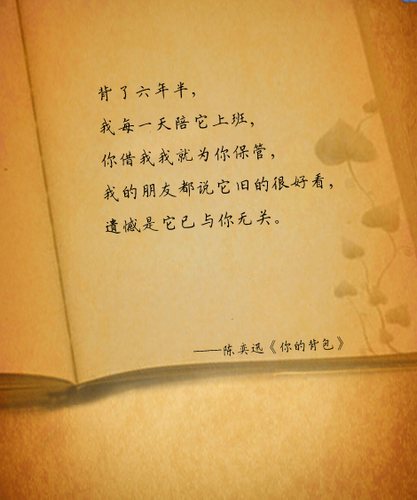 背了六年半，
我每一天陪它上班，
你借我我就为你保管，
我的朋友都说它旧的很好看，
遗憾是它已与你无关。
——陈奕迅《你的背包》